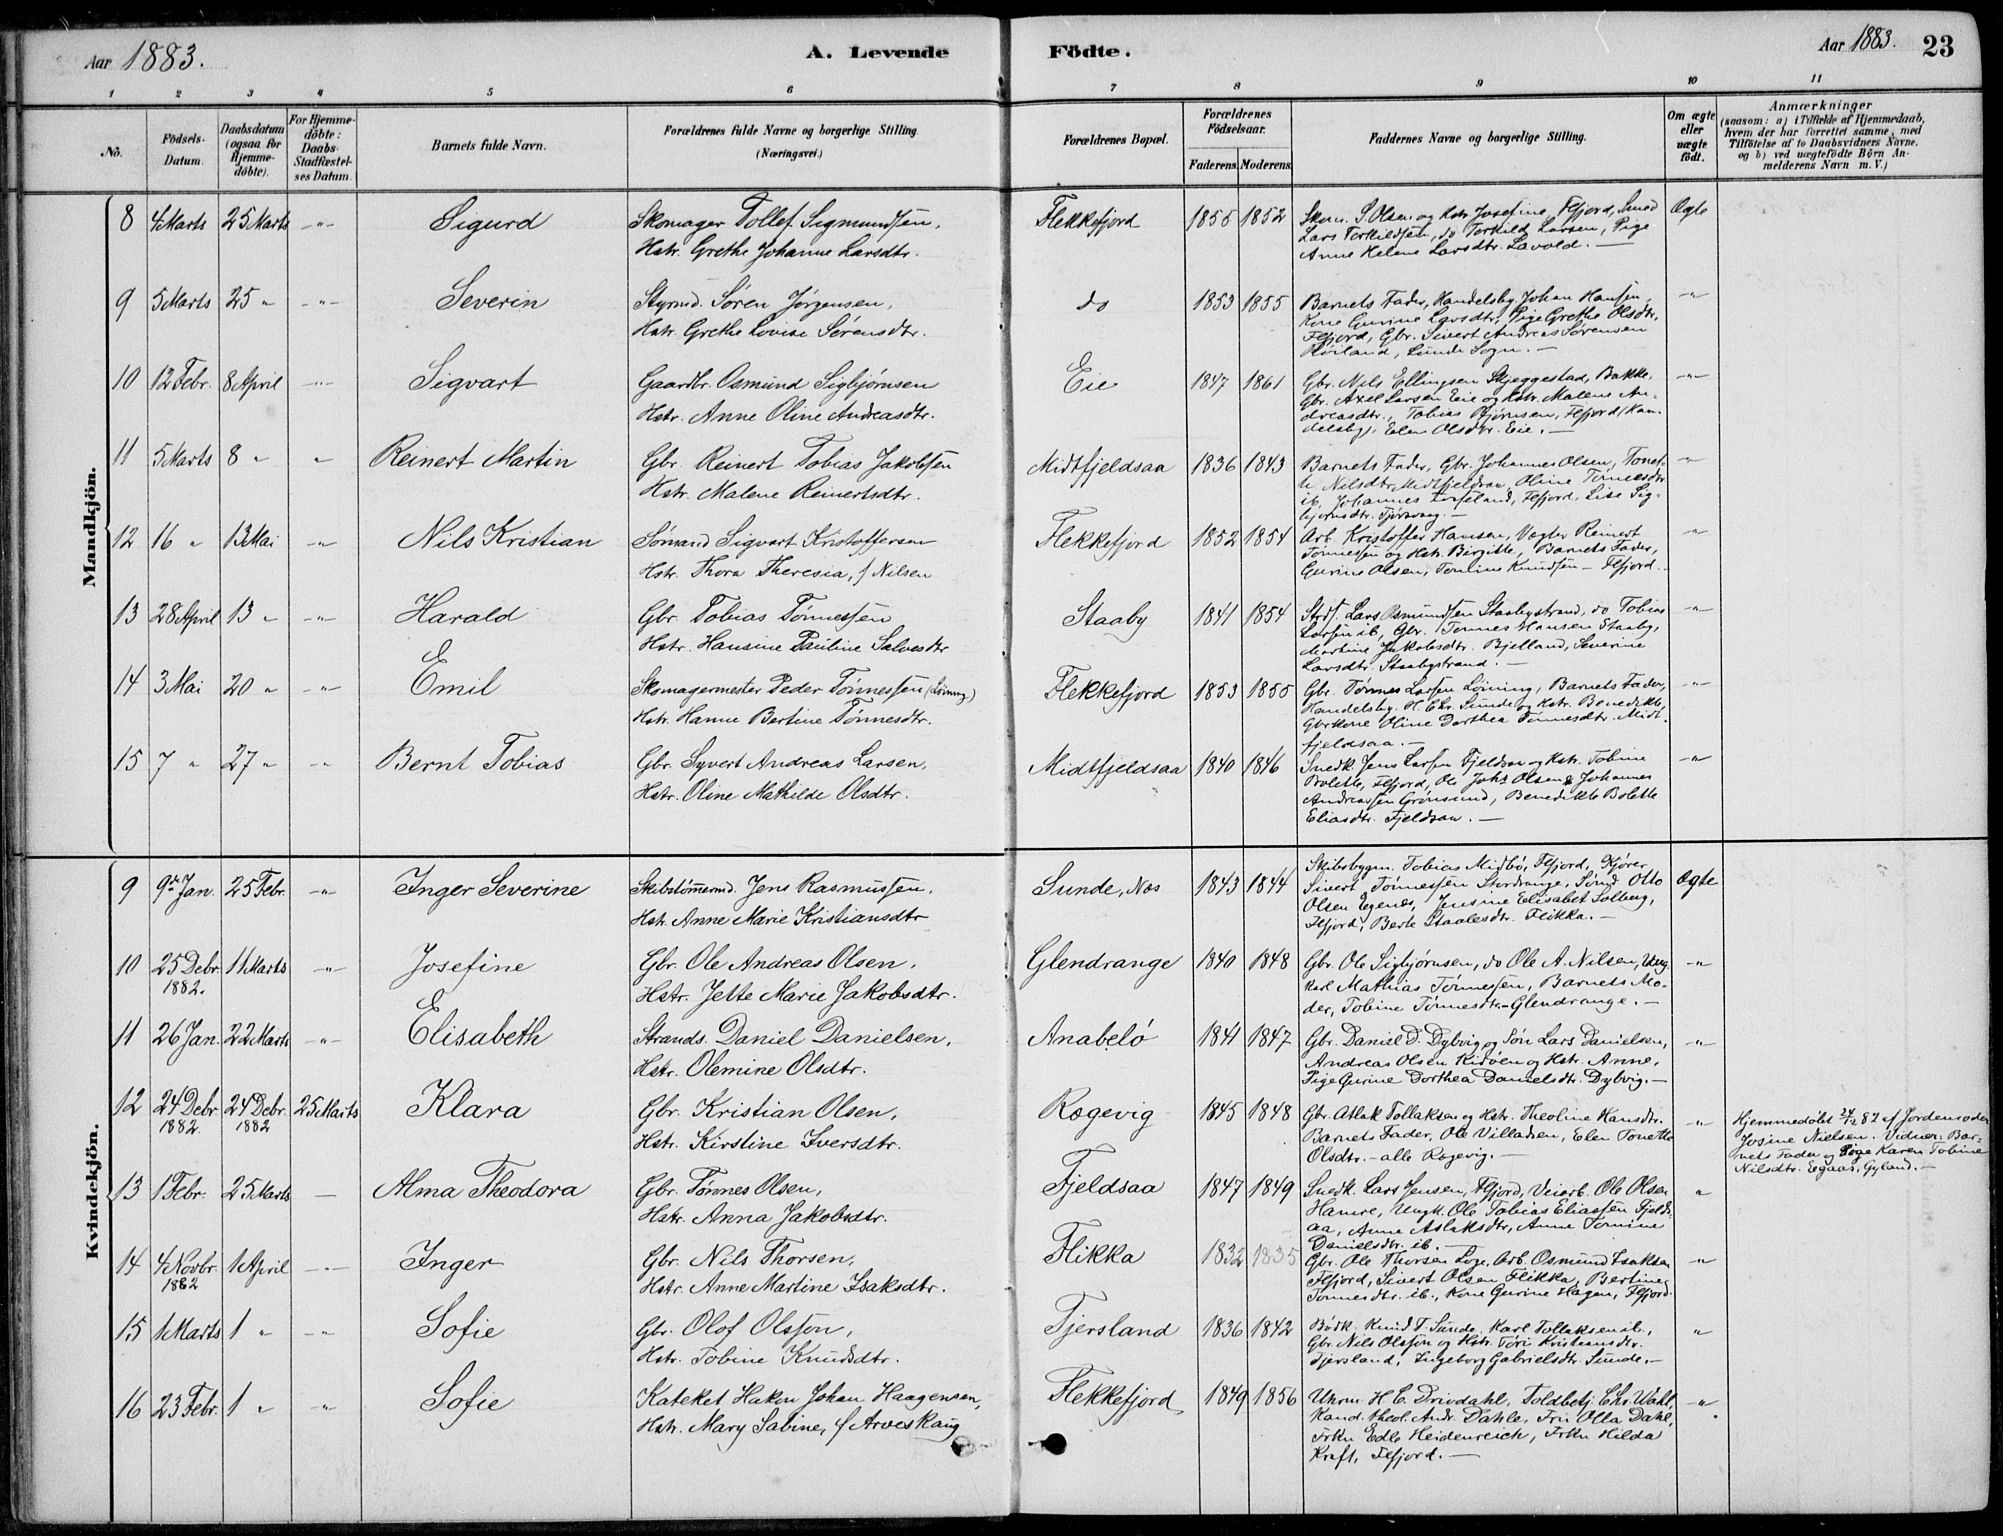 Aar 1883.
A. Levende
Födte.
Aar 1883.
23
1 2 3 4 5 6 7 8 9 10 11
No.
Födsels-Datum.
Daabsdatum (ogsaa för Hjemme-döbte).
For Hjemme-döbte: Daabs-Stadfæstel-ses Datum.
Barnets fulde Navn.
Forældrenes fulde Navne og borgerlige Stilling.
(Næringsvei.)
Forældrenes Bopæl.
Forældrenes Födselsaar.
Faderens. Moderens.
Faddernes Navne og borgerlige Stilling.
Om ægte eller uægte født.
Anmærkninger
(saasom: a) i Tilfælde af Hjemmedaab,
hvem der har forrettet samme, med
Tilföielse af to Daabsvidners Navne,
og b) ved uægtefödte Börn An-
melderens Navn m. V.)
Mandkjön.
8 4 Marts 25 Marts -"- Sigurd
Skomager Tollef Sigmundsen,
Hstr. Grethe Johanne Larsdtr.
Flekkefjord 1855 1852
Skom. S. Olsen og Hstr. Josefine, Flfjord, Smed
Lars Torkildsen, do Torkild Larsen, Pige
Anne Helene Larsdtr. Lavold. —
Ægte
9 5 Marts 25 " -"- Severin
Styrmd. Søren Jørgensen,
Hstr. Grethe Lovise Sørensdtr.
do 1853 1855
Barnets Fader, Handelsbg. Johan Hansen,
Kone Gurine Larsdtr., Pige Grethe Olsdtr.
Flfjord, Gbr. Sivert Andreas Sørensen
Lunde Sogn. —
-"-
10 12 Febr. 8 April -"- Sigvart
Gaardbr. Osmund Sigbjørnsen
Hstr. Anne Oline Andreasdtr.
Eie 1847 1861
Gbr. Nils Ellingsen Skjeggestad, Bakke,
Gbr. Axel Larsen Eie og Hstr. Malene An-
dreasdtr., Tobias Bjørnsen, Flfjord (Han-
delsbg), Elen Olsdtr. Eie. —
-"-
11 5 Marts 8 " " Reinert Martin
Gbr. Reinert Tobias Jakobsen
Hstr. Malene Reinertsdtr.
Midtfjeldsaa 1836 1843
Barnets Fader, Gbr. Johannes Olsen, Tonet-
te Nilsdtr. Midtfjeldsaa, Oline Tønnesdtr
ib, Johannes Flfjord, Lise Sig-
bjørnsdtr. —
"
12 16 " 13 Mai -"- Nils Kristian
Sømand Sigvart Kristoffersen
Hstr. Thora Theresia, f. Nilsen
Flekkefjord 1852 1854
Arb. Kristoffer Hansen, Vægter Reinert
Tønnesen og Hstr. Birgitte, Barnets Fader,
Gurine Olsen, Tomine Knudsen – Flfjord.
"
13 28 April 13 " -"- Harald
Gbr. Tobias Tønnessen
Hstr. Hansine Pauline Salvesdtr
Staaby 1841 1854
Strds. Lars Osmundsen Staabystrand, do Tobias
Larsen ib, Gbr. Tønnes Hansen Staaby,
Martine Jakobsdtr. Bjelland, Severine
Larsdtr. Staabystrand. —
"
14 3 Mai 20 " -"- Emil
Skomagermester Peder Tønnessen (Løining)
Hstr. Hanne Bertine Tønnesdtr.
Flekkefjord 1853 1855
Gbr. Tønnes Larsen Løining, Barnets Fader,
Handelsbg. H. Chr. Sunde og Hstr. Benedikte,
Gbrkone Oline Dorthea Tønnesdtr. Midt-
fjeldsaa. —
-"-
15 7 " 27 " -"- Bernt Tobias
Gbr. Syvert Andreas Larsen,
Hstr. Oline Mathilde Olsdtr.
Midtfjeldsaa 1840 1846
Snedk. Jens Larsen Fjeldsaa og Hstr. Tobine
Bolette, Flfjord, Ole Johs Olsen & Johannes
Andreassen Grønsund, Benedikte Bolette
Eliasdtr. Fjeldsaa. —
-"-
Kvindekjön.
9 9de Jan. 25 Febr. -"- Inger Severine
Skibstømmermd. Jens Rasmussen,
Hstr. Anne Marie Kristiansdtr
Sunde, Næs 1843 1844
Skibsbygm. Tobias Midbø, Flfjord, Kjører
Sivert Tønnessen Stordrange, Sømd Otto
Olsen Egenæs, Jensine Elisabet Solberg,
Flfjord, Berte Staalesdtr. Flikka. —
Ægte
10 25 Debr. 1882. 11 Marts -"- Josefine
Gbr. Ole Andreas Olsen,
Hstr. Jette Marie Jakobsdtr.
Glendrange 1840 1848
Gbr. Ole Sigbjørnsen, do Ole A. Nilsen, Ung-
karl Mathias Tønnessen, Barnets Mo-
der, Tobine Tønnesdtr. – Glendrange. —
-"-
11 26 Jan. 22 Marts -"- Elisabeth
Strands. Daniel Danielsen,
Hstr. Olemine Olsdtr.
Anabelø 1841 1847
Gbr. Daniel D. Dybvig og Søn Lars Danielsen,
Andreas Olsen Kidøen og Hstr. Anne,
Pige Gurine Dorthea Danielsdtr. Dybvig. —
-"-
12 24 Debr 1882. 24 Debr. 1882 25 Marts Klara
Gbr. Kristian Olsen,
Hstr. Kirstine Iversdtr.
Rægevig 1845 1848
Gbr. Atlak Tollaksen og Hstr. Theoline Hansdtr.
Barnets Fader, Ole Villadsen, Elen Tonette
Olsdtr. – alle Rægevig. —
"
Hjemmedøbt 24/12 82 af Jordemoder
Josine Nielsen. Vidner: Bar-
nets Fader og Pige Karen Tobine
Nilsdtr. Egaas, Gyland. —
13 1 Febr. 25 Marts — Alma Theodora
Gbr. Tønnes Olsen,
Hstr. Anna Jakobsdtr.
Fjeldsaa 1847 1849
Snedk. Lars Jensen, Flfjord, Veiarb. Ole Olsen
Hamre, Ungk. Ole Tobias Eliassen Fjelds-
aa, Anne Aslaksdtr, Anne Tomine
Danielsdtr. ib. —
"
14 4 Novbr. 1882 1 April -"- Inger
Gbr. Nils Thorsen,
Hstr. Anne Martine Isaksdtr.
Flikka 1832 1835
Gbr. Ole Thorsen Loge, Arb. Osmund Isaksen
Flfjord, Sivert Olsen Flikka, Bertine
Tønnesdtr. ib., Kone Gurine Hagen, Flfjord.
"
15 1 Marts 1 " -"- Sofie
Gbr. Olof Olsson,
Hstr. Tobine Knudsdtr.
Tjersland 1836 1842
Bødk. Knud T. Sunde, Karl Tollaksen ib.,
Gbr. Nils Olsson og Hstr. Tøri Kristiansdtr.
Tjersland, Ingeborg Gabrielsdtr. Sunde. —
"
16 23 Febr. 1 " -"- Sofie
Kateket Hakon Johan Haagensen,
Hstr. Mary Sabine, f. Arveskaug
Flekkefjord 1849 1856
Uhrm. H. E. Drivdahl, Toldbetj. Chr. Wahl,
Kand. theol. Andr. Dahle, Fru Olla Dahl,
Frkn Edle Heidenreich, Frkn Hilda
Kraft, Flfjord. —
-"-